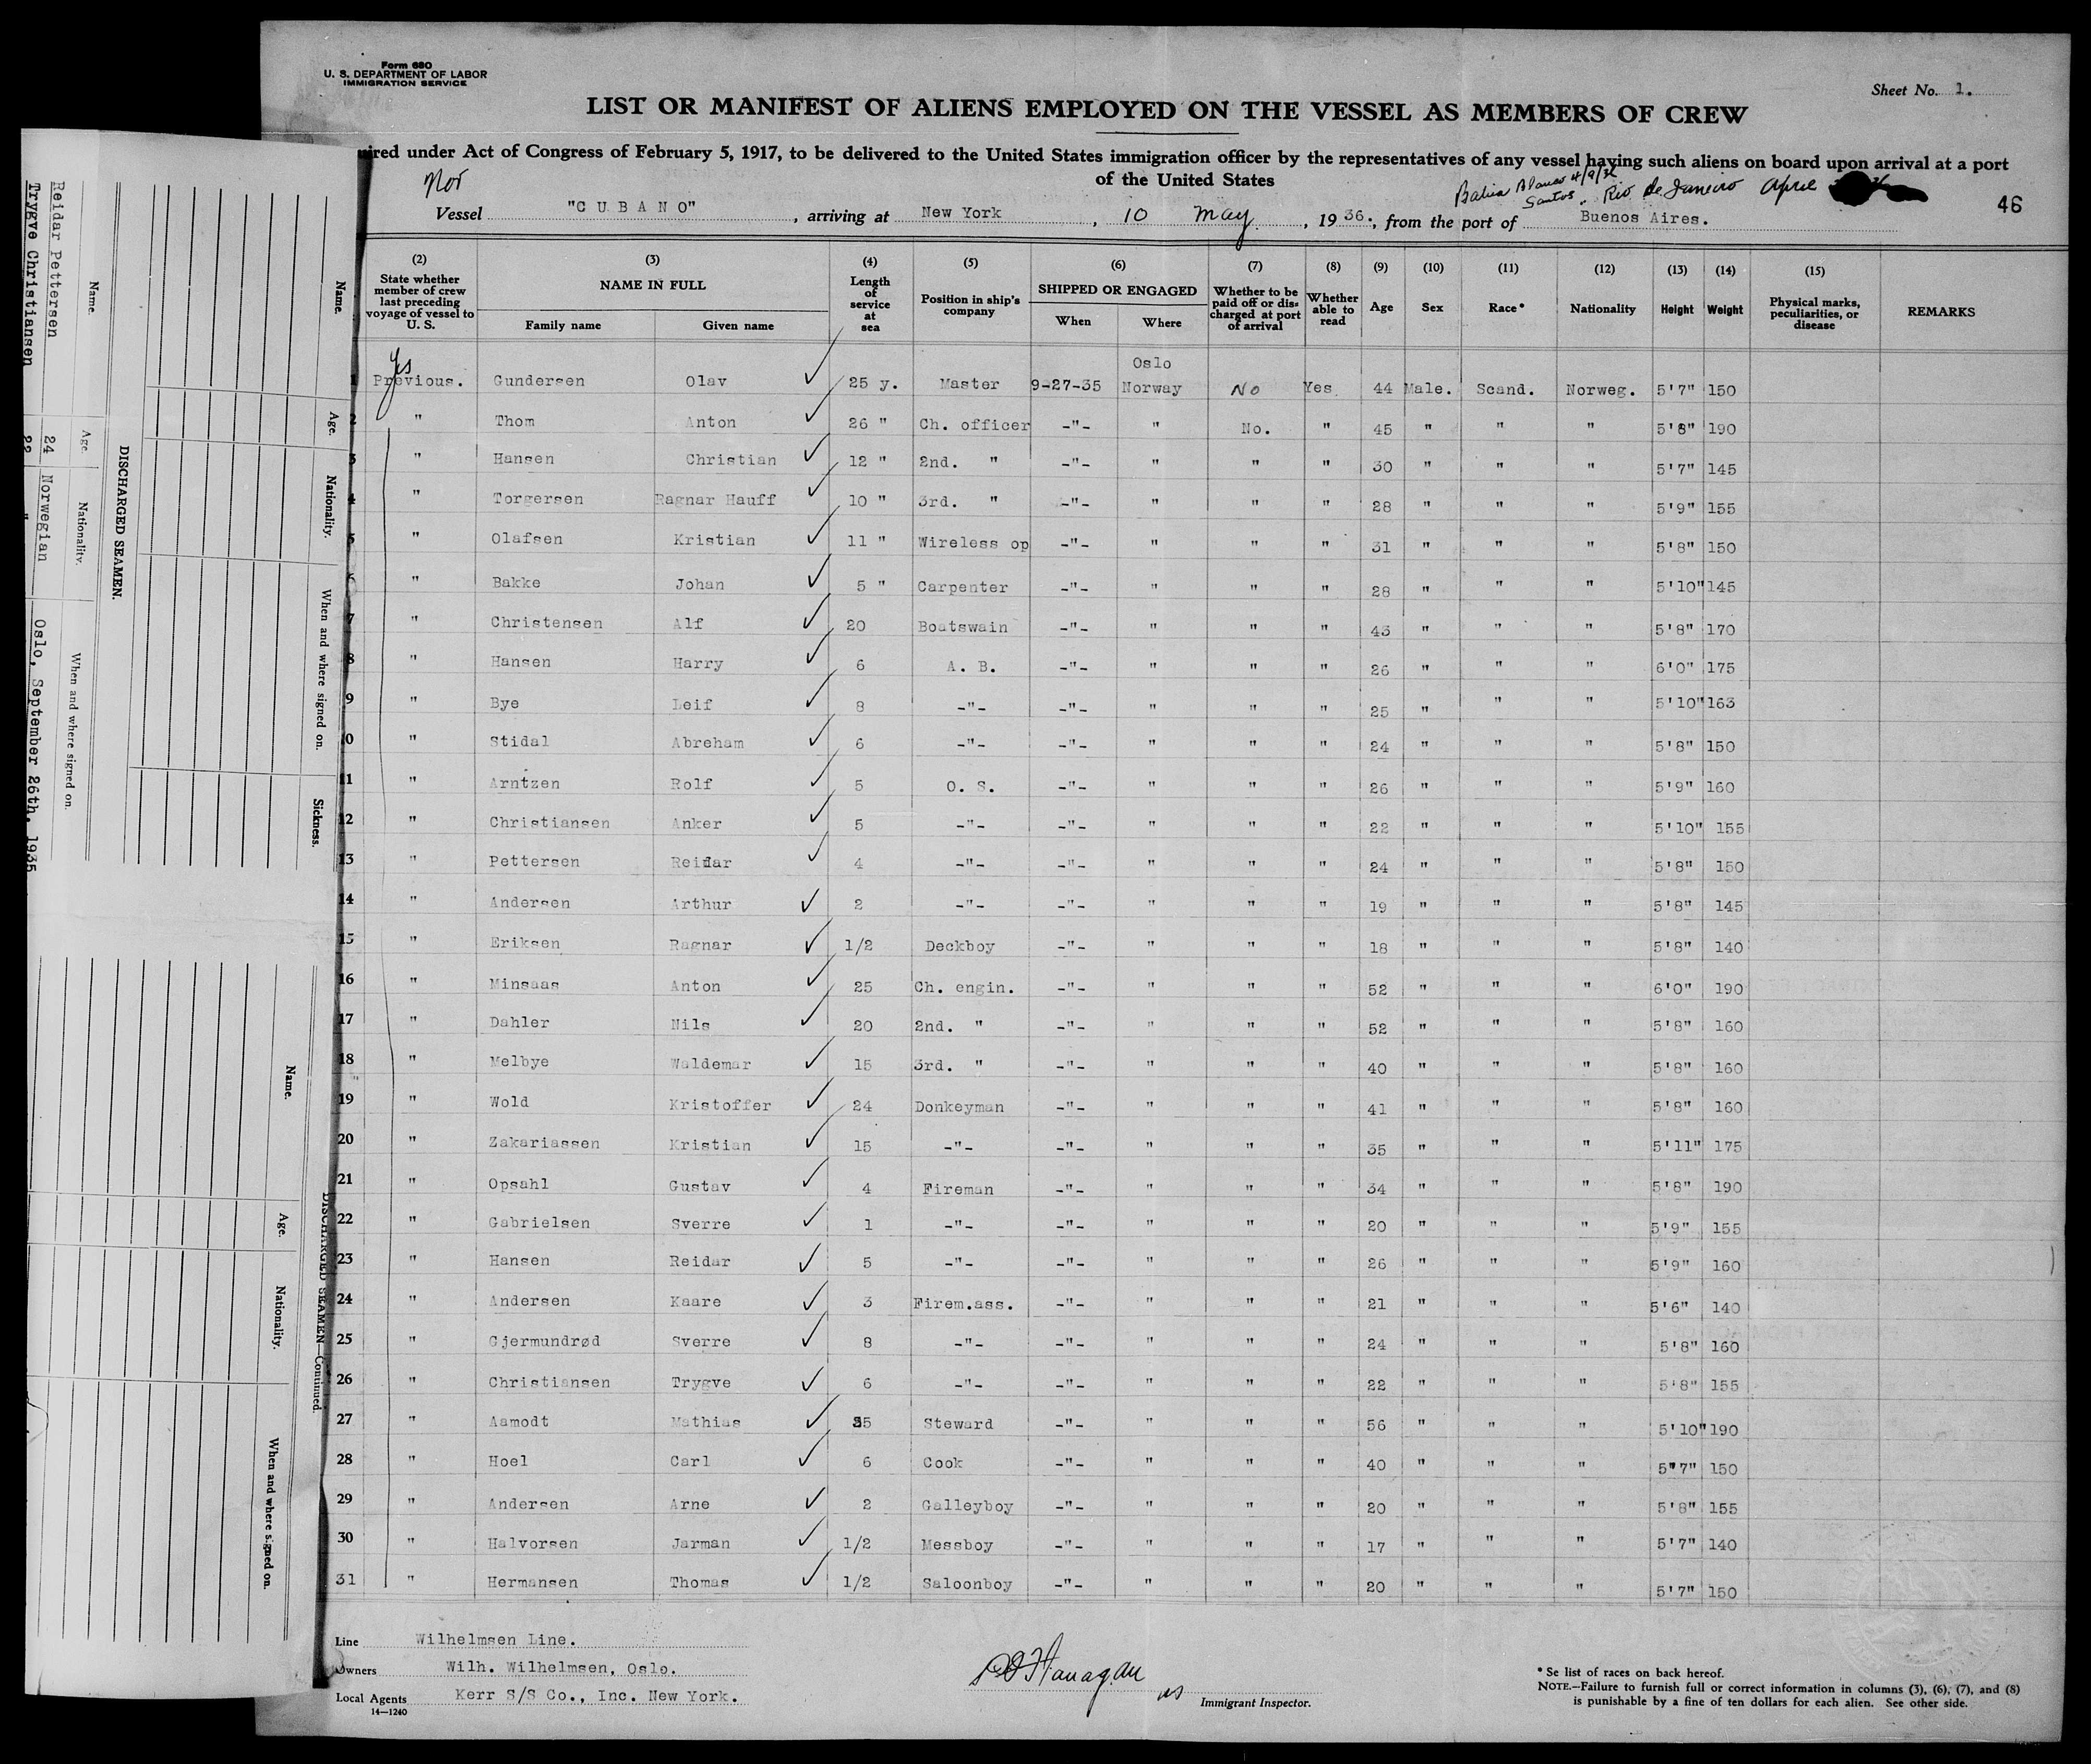 Form 680
U. S. DEPARTMENT OF LABOR
IMMIGRATION SERVICE
Sheet No. 1.
LIST OR MANIFEST OF ALIENS EMPLOYED ON THE VESSEL AS MEMBERS OF CREW
ired under Act of Congress of February 5, 1917, to be delivered to the United States immigration officer by the representatives of any vessel having such aliens on board upon arrival at a port
of the United States
Nor
Santos, Rio de Janeiro April
46
Vessel "CUBANO", arriving at New York, 10 May, 1936., from the port of Buenos Aires.
(2) State whether member of crew last preceding voyage of vessel to U. S.
(3) NAME IN FULL
Family name Given name
(4) Length of service at sea
(5) Position in ship's company
(6) SHIPPED OR ENGAGED
When Where
(7) Whether to be paid off or discharged at port of arrival
(8) Whether able to read
(9) Age
(10) Sex
(11) Race*
(12) Nationality
(13) Height
(14) Weight
(15) Physical marks, peculiarities, or disease
REMARKS
Yes
Oslo
1 Previous. Gundersen Olav 25 y. Master 9-27-35 Norway No Yes 44 Male. Scand. Norweg. 5'7" 150
2 " Thom Anton 26 " Ch. officer -"- " No. " 45 " " " 5'8" 190
3 " Hansen Christian 12 " 2nd. " -"- " " " 30 " " " 5'7" 145
4 " Torgersen Ragnar Hauff 10 " 3rd. " -"- " " " 28 " " " 5'9" 155
5 " Olafsen Kristian 11 " Wireless op -"- " " " 31 " " " 5'8" 150
6 " Bakke Johan 5 " Carpenter -"- " " " 28 " " " 5'10" 145
7 " Christensen Alf 20 Boatswain -"- " " " 43 " " " 5'8" 170
8 " Hansen Harry 6 A. B. -"- " " " 26 " " " 6'0" 175
9 " Bye Leif 8 -"- -"- " " " 25 " " " 5'10" 163
10 " Stidal Abreham 6 -"- -"- " " " 24 " " " 5'8" 150
11 " Arntzen Rolf 5 O. S. -"- " " " 26 " " " 5'9" 160
12 " Christiansen Anker 5 -"- -"- " " " 22 " " " 5'10" 155
13 " Pettersen Reidar 4 -"- -"- " " " 24 " " " 5'8" 150
14 " Andersen Arthur 2 -"- -"- " " " 19 " " " 5'8" 145
15 " Eriksen Ragnar 1/2 Deckboy -"- " " " 18 " " " 5'8" 140
16 " Minsaas Anton 25 Ch. engin. -"- " " " 52 " " " 6'0" 190
17 " Dahler Nils 20 2nd. " -"- " " " 52 " " " 5'8" 160
18 " Melbye Waldemar 15 3rd. " -"- " " " 40 " " " 5'8" 160
19 " Wold Kristoffer 24 Donkeyman -"- " " " 41 " " " 5'8" 160
20 " Zakariassen Kristian 15 -"- -"- " " " 35 " " " 5'11" 175
21 " Opsahl Gustav 4 Fireman -"- " " " 34 " " " 5'8" 190
22 " Gabrielsen Sverre 1 -"- -"- " " " 20 " " " 5'9" 155
23 " Hansen Reidar 5 -"- -"- " " " 26 " " " 5'9" 160
24 " Andersen Kaare 3 Firem.ass. -"- " " " 21 " " " 5'6" 140
25 " Gjermundrød Sverre 8 -"- -"- " " " 24 " " " 5'8" 160
26 " Christiansen Trygve 6 -"- -"- " " " 22 " " " 5'8" 155
27 " Aamodt Mathias 35 Steward -"- " " " 56 " " " 5'10" 190
28 " Hoel Carl 6 Cook -"- " " " 40 " " " 5'7" 150
29 " Andersen Arne 2 Galleyboy -"- " " " 20 " " " 5'8" 155
30 " Halvorsen Jarman 1/2 Messboy -"- " " " 17 " " " 5'7" 140
31 " Hermansen Thomas 1/2 Saloonboy -"- " " " 20 " " " 5'7" 150
Line Wilhelmsen Line.
Owners Wilh. Wilhelmsen, Oslo.
Local Agents Kerr S/S Co., Inc. New York.
14—1240
Flanagan
Immigrant Inspector.
* Se list of races on back hereof.
NOTE.—Failure to furnish full or correct information in columns (3), (6), (7), and (8)
is punishable by a fine of ten dollars for each alien. See other side.
Name. Age. Nationality. When and where signed on. Sickness.
DISCHARGED SEAMEN.
Name. Age. Nationality. When and where signed on.
Reidar Pettersen 24 Norwegian Oslo, September 26th. 1935
Trygve Christiansen 22 "
DISCHARGED SEAMEN—Continued.
Name. Age. Nationality. When and where signed on.